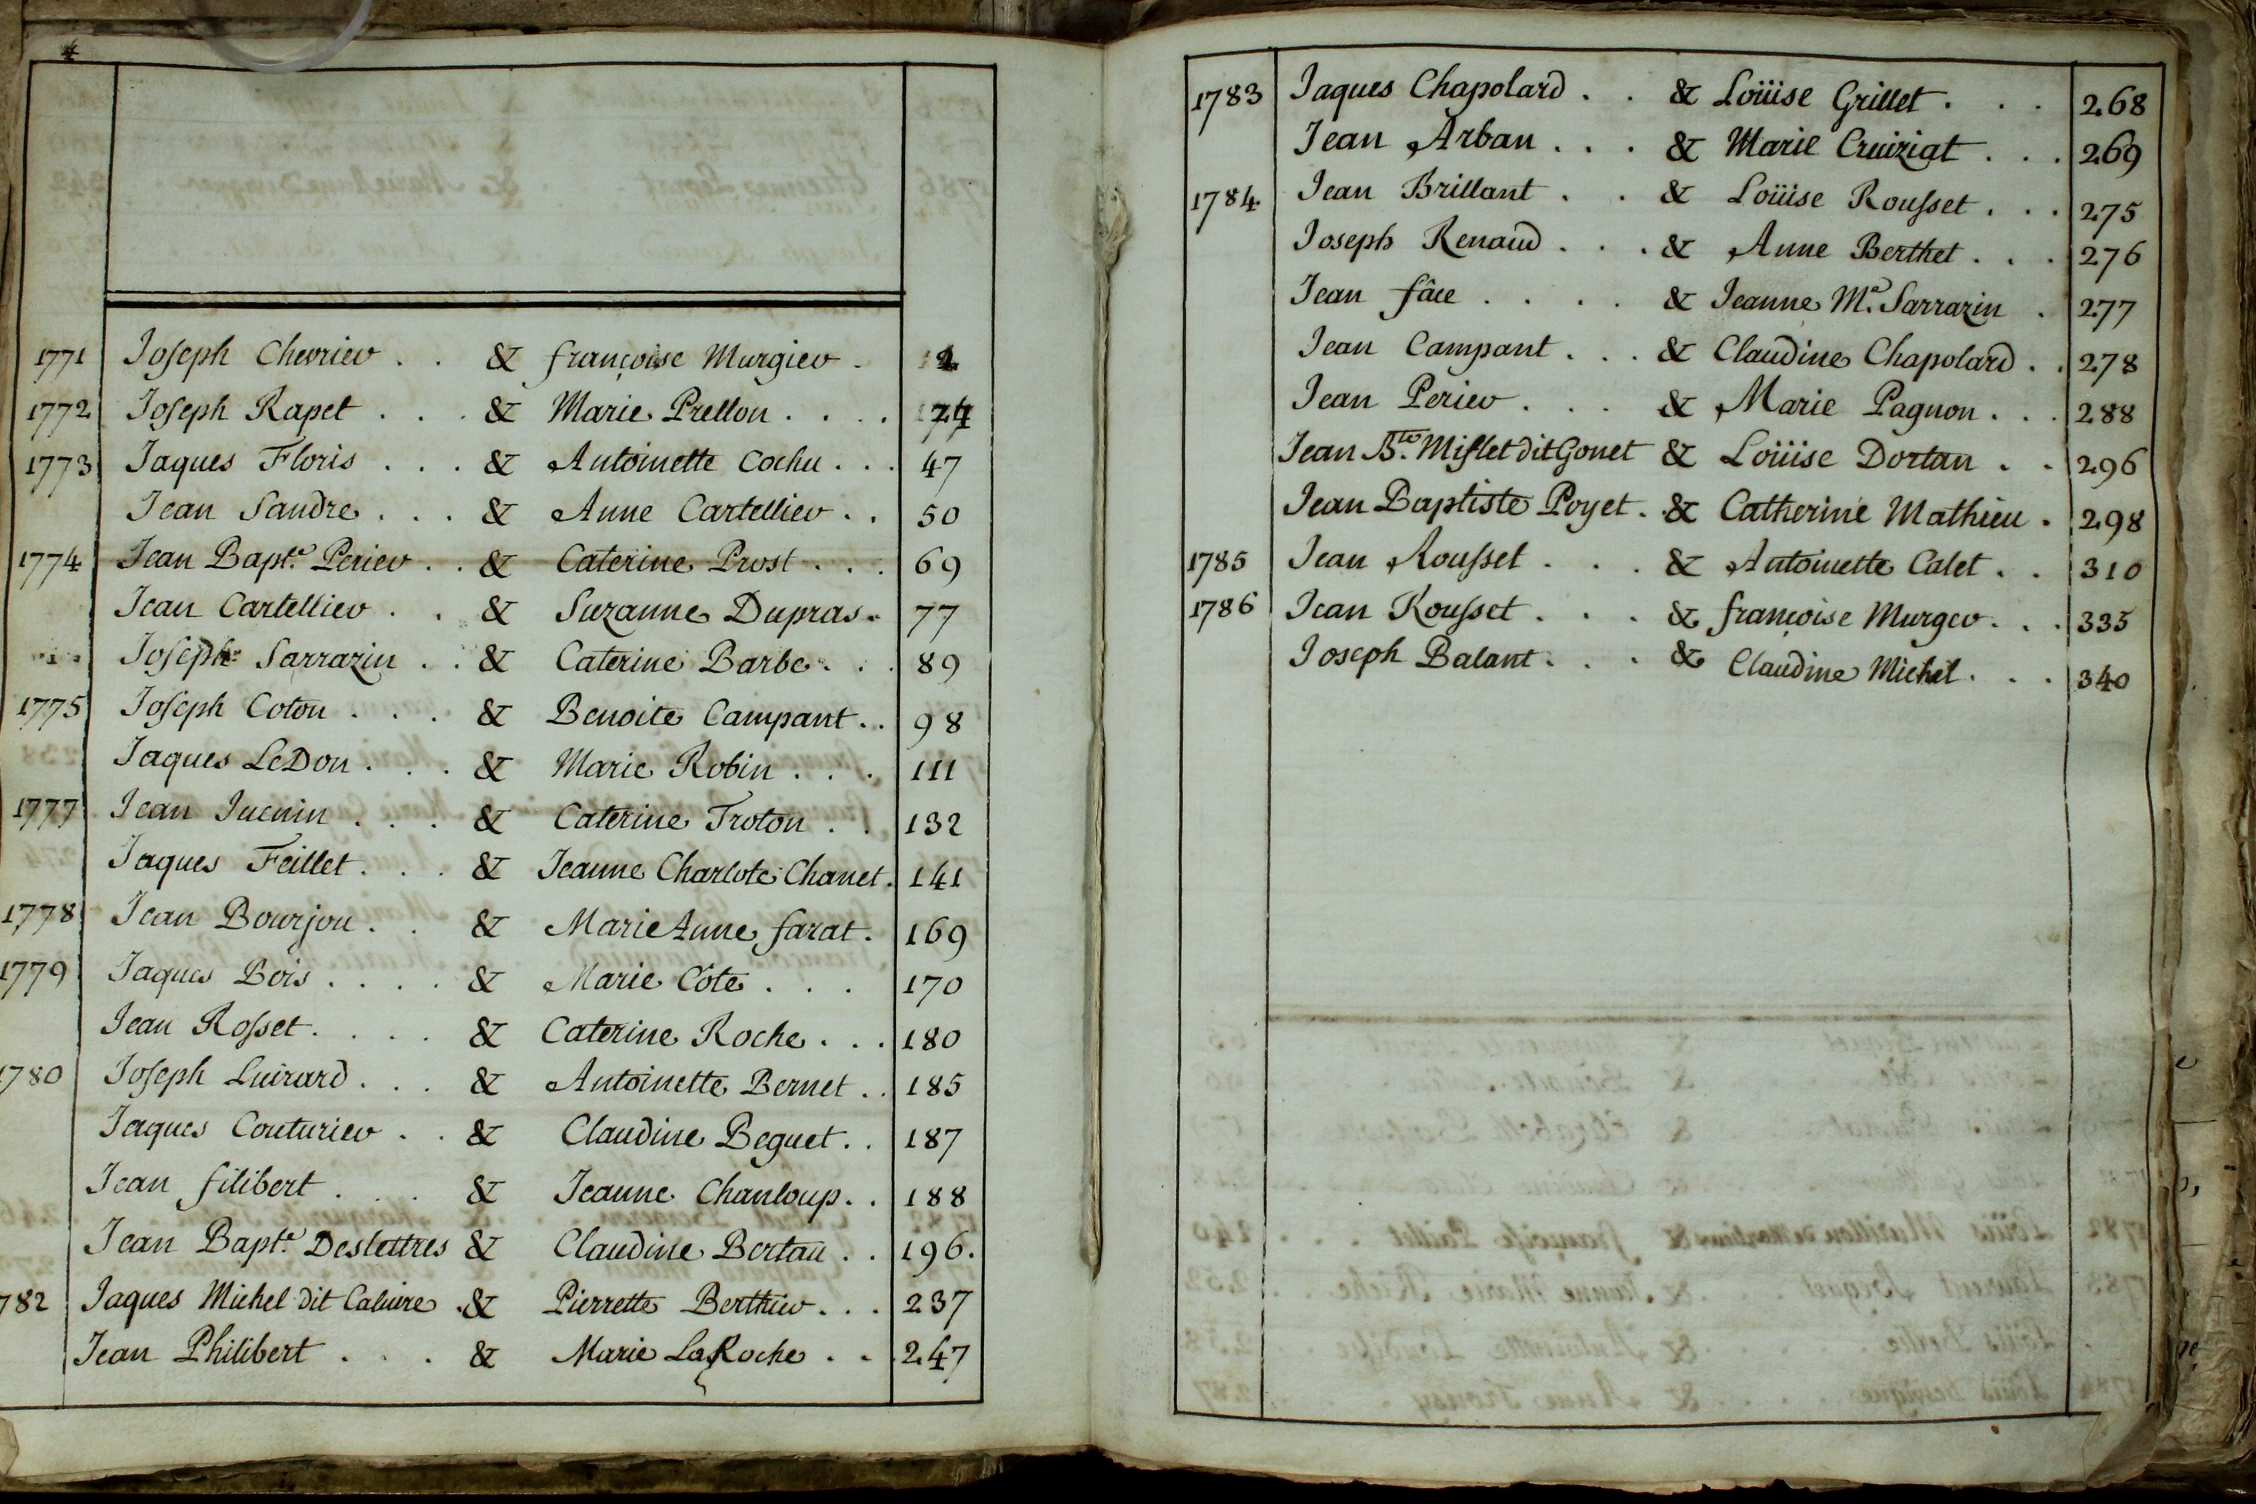 4
1771 Joseph Chevrier . . & françoise Murgier . 2
1772 Joseph Rapet . . . & Marie Prellon . . . . 24
1773 Jaques Floris . . . & Antoinette Cochu . . . 47
Jean Sandre . . . & Anne Cartellier . . 50
1774 Jean Bapt.e Perier . . & Caterine Prost . . . 69
Jean Cartellier . . & Suzanne Dupras . 77
Joseph Sarrazin . . & Caterine Barbe . . . 89
1775 Joseph Coton . . . & Benoite Campant . . 98
Jaques LeDon . . . & Marie Robin . . . 111
1777 Jean Juenin . . . & Caterine Troton . . 132
Jaques Feillet . . . & Jeanne Charlote Chanet . 141
1778 Jean Bourjon . . & Marie Anne farat . 169
1779 Jaques Bois . . . . & Marie Côte . . . 170
Jean Rosset . . . . & Caterine Roche . . . 180
1780 Joseph Luirard . . . & Antoinette Bernet . . 185
Jaques Couturier . . & Claudine Beguet . . 187
Jean filibert . . . & Jeanne Chanloup . . 188
Jean Bapt.e Deslettres & Claudine Bertau . . 196.
782 Jaques Michel dit Caluire . & Pierrette Berthier . . . 237
Jean Philibert . . . & Marie LaRoche . . . 247
1783 Jaques Chapolard . . & Loüise Grillet . . . 268
Jean Arban . . . & Marie Cruiziat . . . 269
1784 Jean Brillant . . & Loüise Rousset . . . 275
Joseph Renaud . . . & Anne Berthet . . . 276
Jean fâce . . . . & Jeanne M.e Sarrazin . 277
Jean Campant . . . & Claudine Chapolard . . 278
Jean Perier . . . & Marie Pagnon . . . 288
Jean B.te Mislet dit Gonet & Loüise Dortan . . 296
Jean Baptiste Poyet . & Catherine Mathieu . 298
1785 Jean Rousset . . . & Antoinette Calet . . 310
1786 Jean Rousset . . . & françoise Murger . . . 335
Joseph Balant . . . & Claudine Michel . . . 340